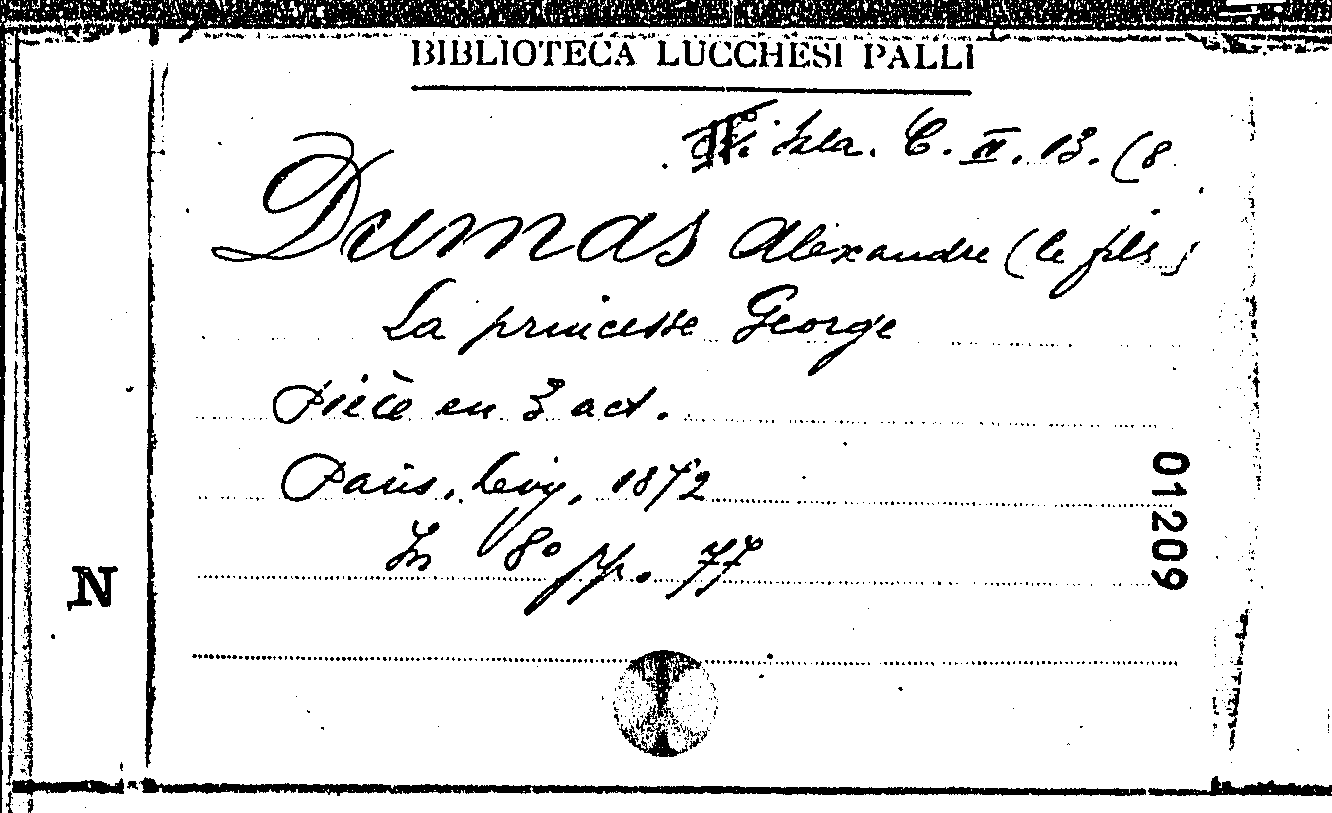 BIBLIOTECA LUCCHESI PALLI
Sala. C. II. 13. (8
Dumas Alexandre (le fils)
La princesse George
Pièce en 3 act.
Paris, Levy, 1872
In 8º pp. 77
01209
N